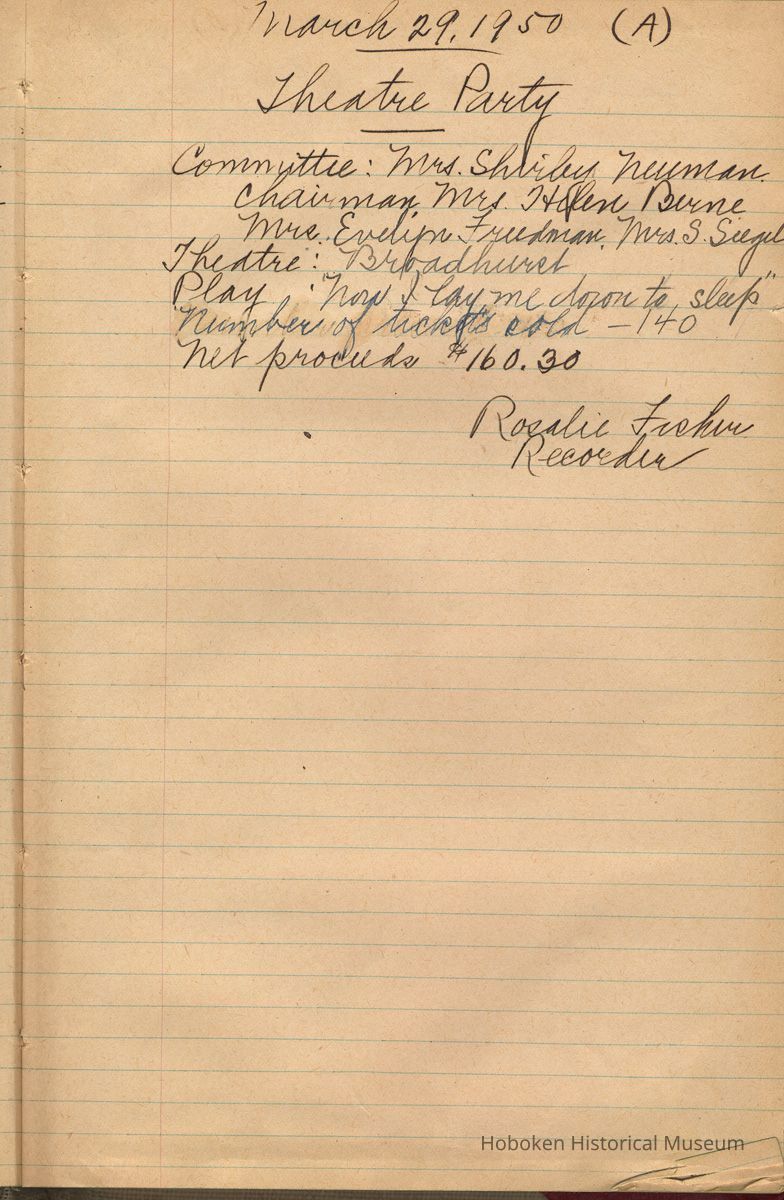 March 29, 1950 (A)
Theatre Party
Committee: Mrs. Shirley Neuman.
Chairman Mrs. Helen Berne
Mrs. Evelyn Freedman, Mrs. S. Siegel
Theatre: Broadhurst
Play : "Now I lay me down to sleep"
Number of tickets sold - 140
Net proceeds $160.30
Rosalie Fisher
Recorder
Hoboken Historical Museum